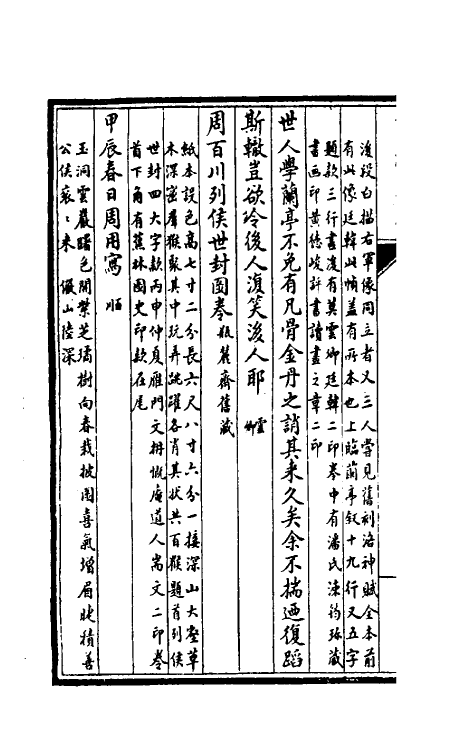 後段白描右軍像同立者又三人嘗見舊刻洛神賦全本前
有此像廷韓此幀蓋有所本也上臨蘭亭叙十九行又五字
題款三行畫後有莫雲卿廷韓二印卷中有潘氏湅鈞珎藏
書画印黄德峻評書讀畫之章二印
世人學蘭亭不免有凡骨金丹之誚其来久矣余不揣迺復蹈
斯轍豈欲令後人復笑後人耶 雲卿
周百川列侯世封圖卷 瓶麓齋舊藏
紙本設色高七寸二分長六尺八寸六分一接深山大壑草
木深密羣猴聚其中玩弄跳躍各肖其状共百猴題首列侯
世封四大字款丙申仲夏雁門文枏慨庵道人嵩文二印卷
首下角有蕉林園史印款在尾
甲辰春日周用寫 順
玉洞雲嚴曙色開紫芝瑤樹向春栽披圖喜氣增眉睫積善
公侯衮衮来 儼山陸深